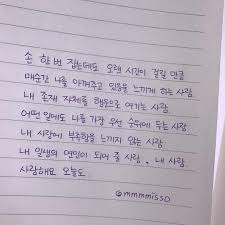 손 한번 잡는데도 오랜 시간이 걸릴 만큼
매순간 나를 아껴주고 있음을 느끼게 하는 사람
내 존재 자체를 행운으로 여기는 사람
어떤 일에도 나를 가장 우선 순위에 두는 사람
내 사랑에 부족함을 느끼지 않는 사람
내 일생의 연인이 되어 줄 사람. 내 사랑
사랑해요 오늘도
@mmmmisso